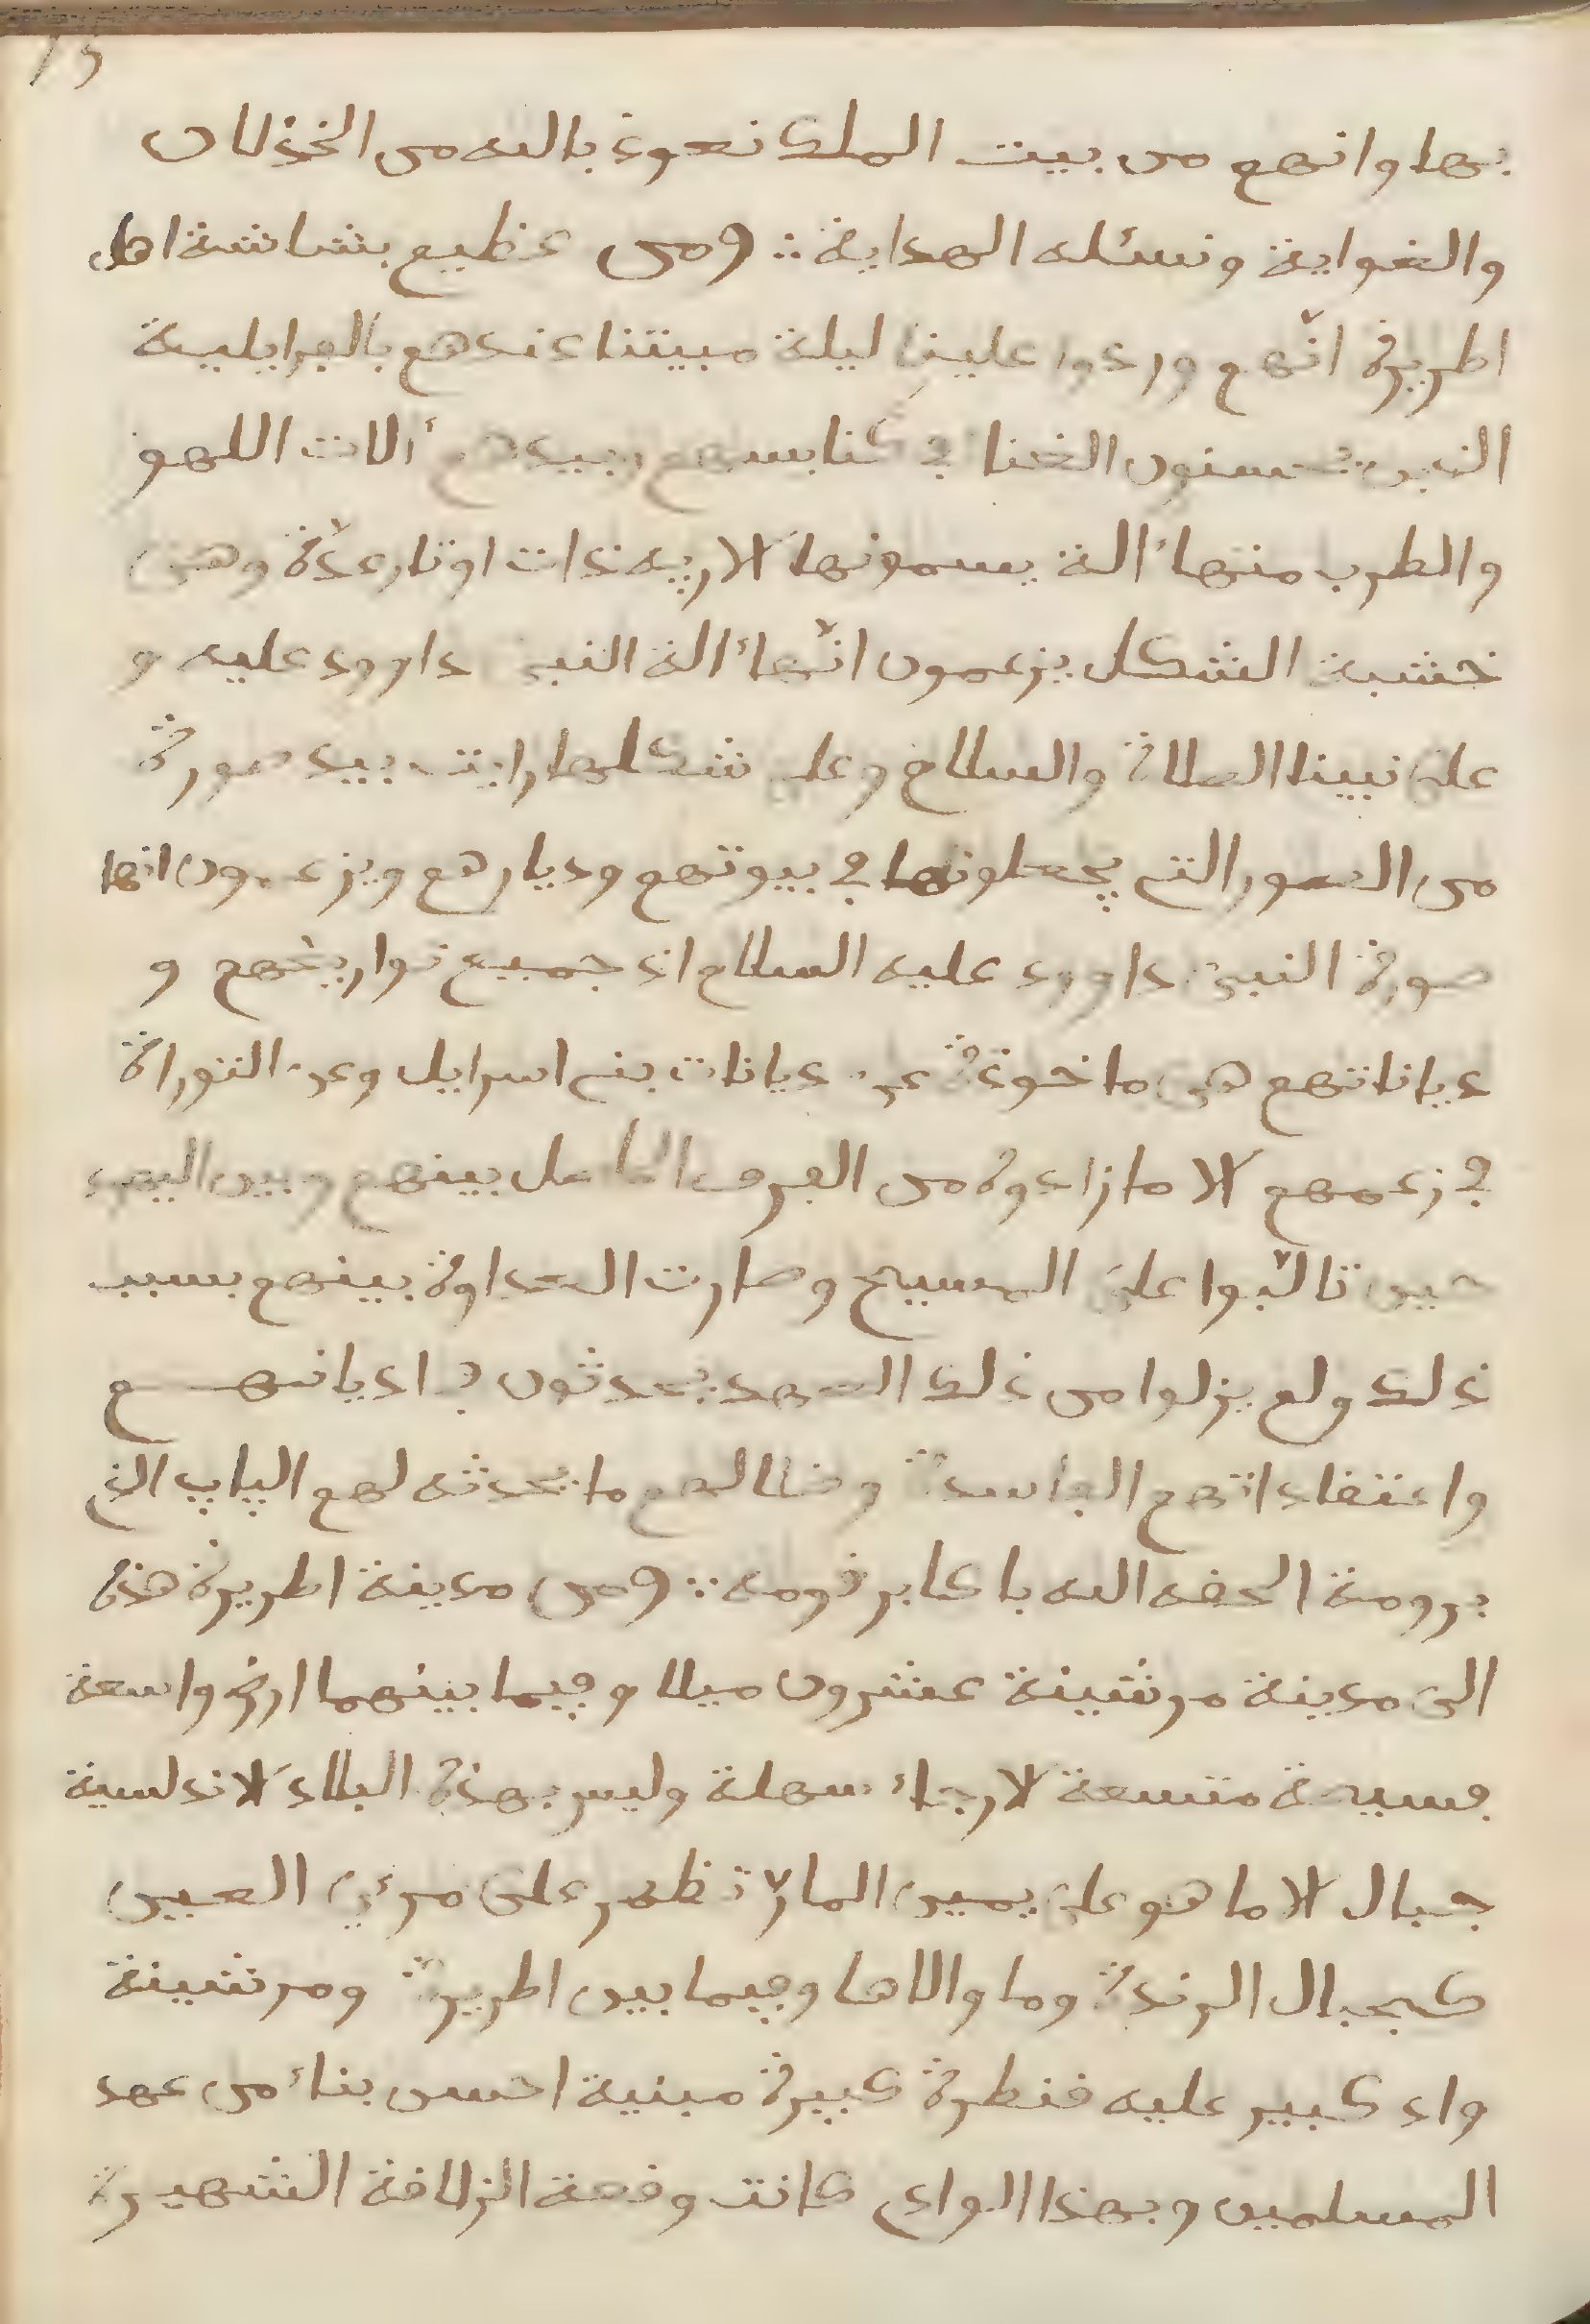 15
بها وانهم من بيت الملك نعوذ بالله من الخذلان
والغواية ونسئله الهداية ∴ ومن عظيم بشاشة اهل
اطريرة انّهم وردوا علينا ليلة مبيتنا عندهم بالفرايلية
الذين يحسنون الغنا في كنايسهم وبيدهم ءالات اللهو
والطرب منها ءالة يسمونها الاريه ذات اوتار عدّة وهي
خشبة الشكل يزعمون انّها ءالة النبي داوود عليه و
على نبينا الصلاة والسلام وعلى شكلها رايت بيد صورة
من الصور التي يجعلونها في بيوتهم وديارهم ويزعمون انها
صورة النبي داوود عليه السلام اذ جميع تواريخهم و
ديانتهم هي ماخوذة عن ديانات بني اسرايل وعن التوراة
في زعمهم الا ما زادوه من الفرق الحاصل بينهم وبين اليهود
حين تالّبوا على المسيح وصارت العداوة بينهم بسبب
ذلك ولم يزلوا من ذلك العهد يحدثون في اديانهم
واعتقاداتهم الفاسدة وضلالهم ما يحدثه لهم الپاپ الذي
برومة الحقه الله باكابر قومه ∴ ومن مدينة اطريرة هذه
الى مدينة مرشينة عشرون ميلا وفيما بينهما ارض واسعة
فسيحة متسعة الارجاء سهلة وليس بهذه البلاد الاندلسية
جبال الا ما هو على يمين المارّ تظهر على مرءي العين
كجبال الرندة وما والاها وفيما بين اطريرة ومرشينة
واد كبير عليه قنطرة كبيرة مبنية احسن بناء من عهد
المسلمين وبهذا الوادي كانت وقعة الزلاقة الشهيرة